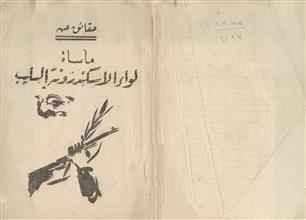 حقائق عن
مأساة
لواء الاسكندرونة السليب